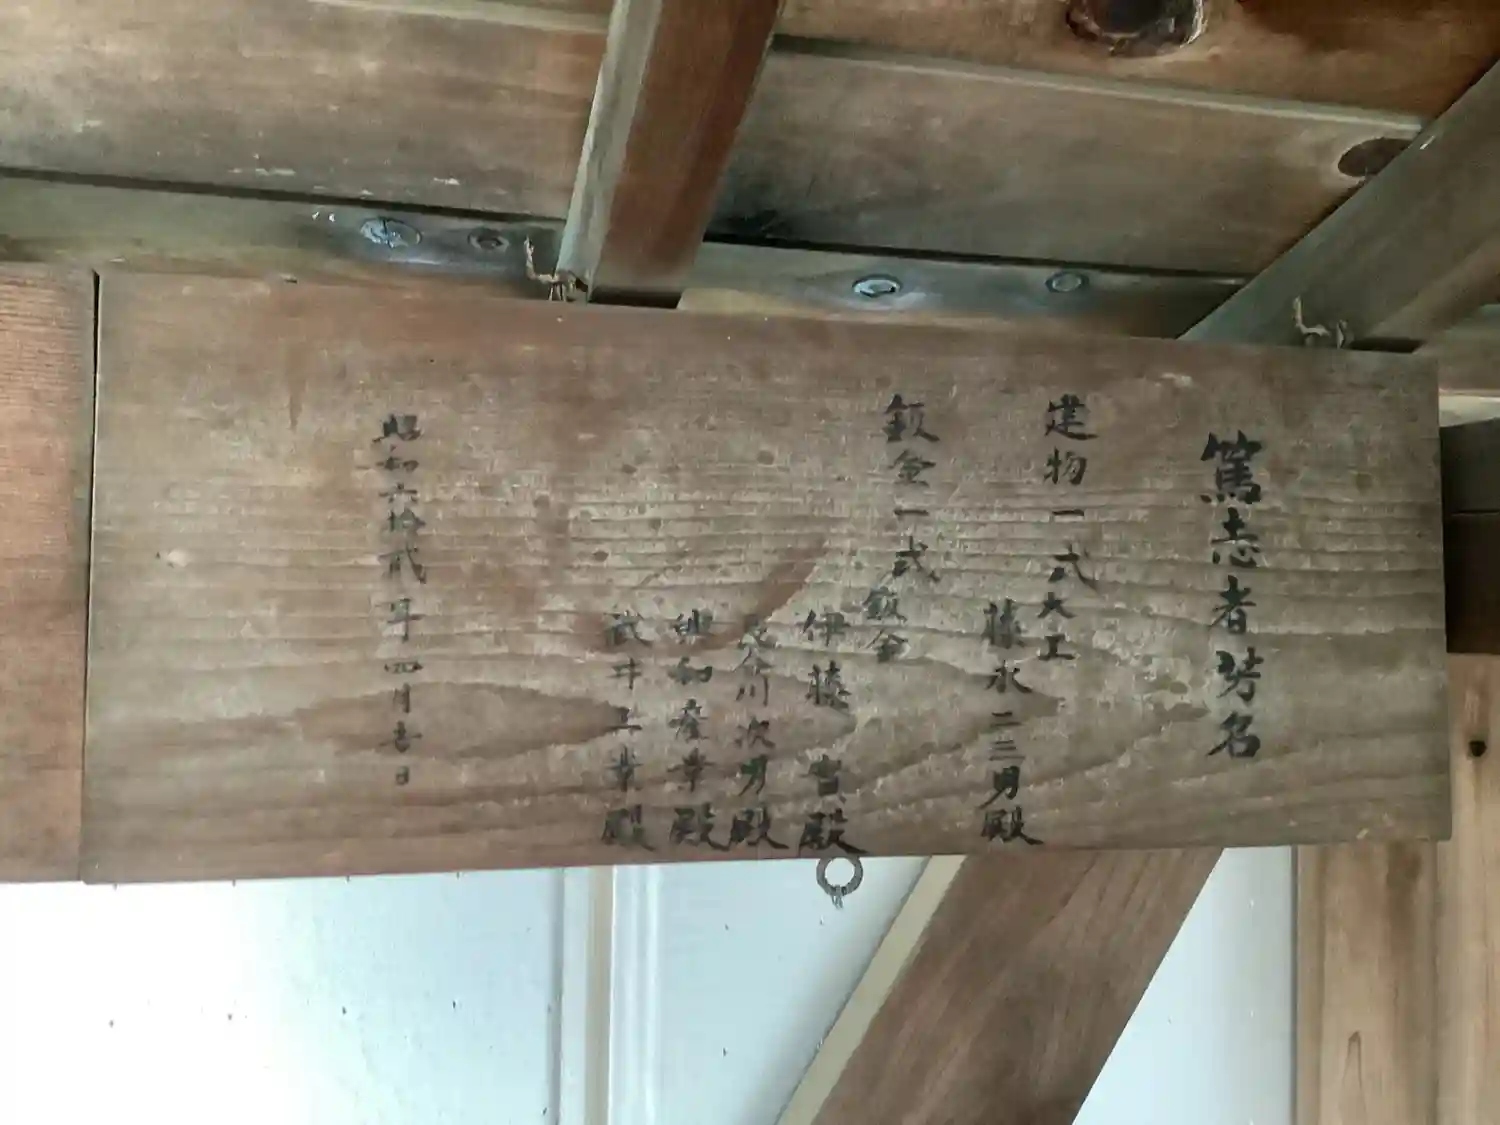 篤志者芳名
建物一式大工
藤永二三男殿
鈑金一式鈑金
伊藤 殿
長谷川次男殿
興和産業殿
武井工業殿
昭和六拾貳年四月吉日